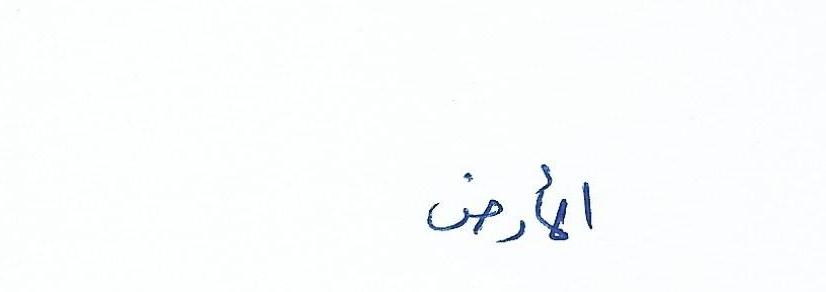 الأرض